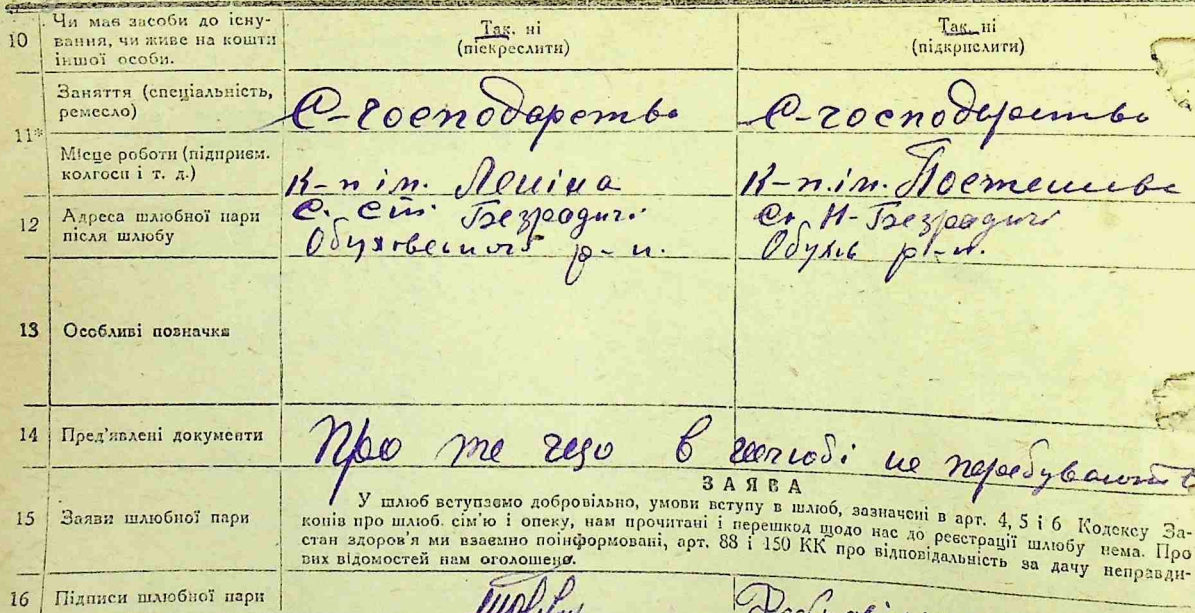 10 Чи має засоби до існу-
вання, чи живе на кошти
іншої особи.
Так, ні
(піскреслити)
Так, ні
(підкрислити)
11*
Заняття (спеціальність,
ремесло)
С-господарство
С-господарство
Місце роботи (підприєм.
колгосп і т. д.)
К-п ім. Леніна
К-п. ім. Постишева
12 Адреса шлюбної пари
після шлюбу
С. Ст. Безрадичі
Обухівського р-н.
С. Н-Безрадичі
Обухів р-н.
13 Особливі позначки
14 Пред'явлені документи
Про те що в шлюбі не перебувають
15 Заяви шлюбної пари
ЗАЯВА
У шлюб вступаємо добровільно, умови вступу в шлюб, зазначені в арт. 4, 5 і 6 Кодексу За-
конів про шлюб. сім'ю і опеку, нам прочитані і перешкод щодо нас до реєстрації шлюбу нема. Про
стан здоров'я ми взаємно поінформовані, арт. 88 і 150 КК про відповідальність за дачу неправди-
вих відомостей нам оголошено.
16 Підписи шлюбної пари